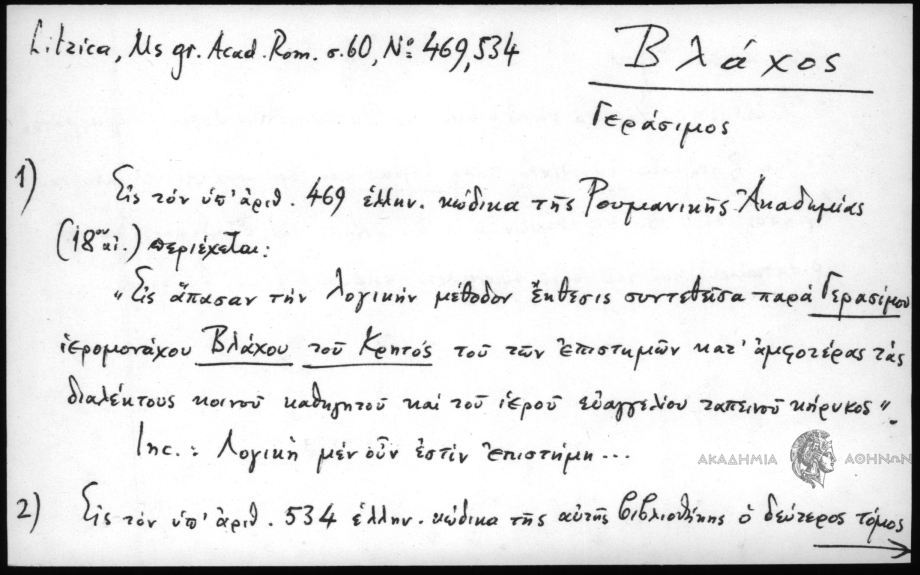 Litzica, Ms gr. Acad. Rom. σ. 60, Nο 469, 534
Βλάχος
Γεράσιμος
1) Εἰς τὸν ὑπ' ἀριθ. 469 ἑλλην. κώδικα τῆς Ρουμανικῆς Ἀκαδημίας
(18ου αἰ.) περιέχεται:
"Εἰς ἅπασαν τὴν λογικὴν μέθοδον ἔκθεσις συντεθεῖσα παρὰ Γερασίμου
ἱερομονάχου Βλάχου τοῦ Κρητός τοῦ τῶν ἐπιστημῶν κατ' ἀμφοτέρας τὰς
διαλέκτους κοινοῦ καθηγητοῦ καὶ τοῦ ἱεροῦ εὐαγγελίου ταπεινοῦ κήρυκος".
Inc.: Λογικὴ μὲν οὖν ἐστὶν ἐπιστήμη...
ΑΚΑΔΗΜΙΑ ΑΘΗΝΩΝ
2) Εἰς τὸν ὑπ' ἀριθ. 534 ἑλλην. κώδικα τῆς αὐτῆς βιβλιοθήκης ὁ δεύτερος τόμος →